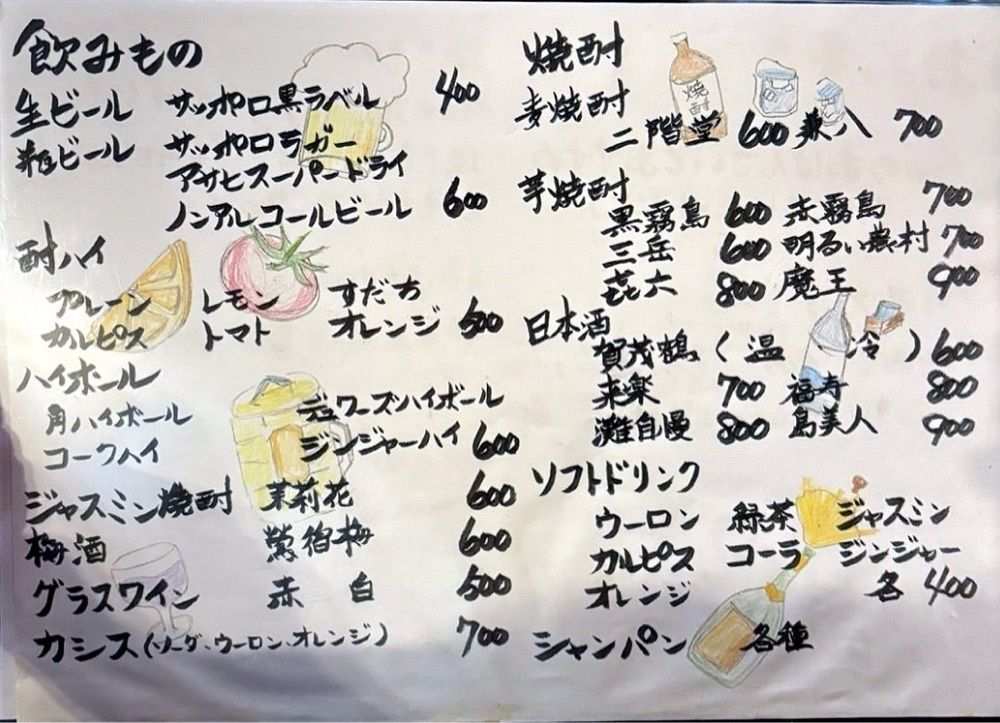 飲みもの
生ビール サッポロ黒ラベル 400
瓶ビール サッポロラガー
アサヒスーパードライ
ノンアルコールビール 600
酎ハイ
プレーン レモン すだち
カルピス トマト オレンジ 500
ハイボール
角ハイボール デュワーズハイボール
コークハイ ジンジャーハイ 600
ジャスミン焼酎 茉莉花 600
梅酒 鶯宿梅 600
グラスワイン 赤 白 500
カシス(ソーダ、ウーロン、オレンジ) 700
焼酎
焼酎
麦焼酎
二階堂 600 兼八 700
芋焼酎
黒霧島 600 赤霧島 700
三岳 600 明るい農村 700
㐂六 800 魔王 900
日本酒
賀茂鶴 (温 冷) 600
来楽 700 福寿 800
灘自慢 800 島美人 900
ソフトドリンク
ウーロン 緑茶 ジャスミン
カルピス コーラ ジンジャー
オレンジ 各400
シャンパン 各種